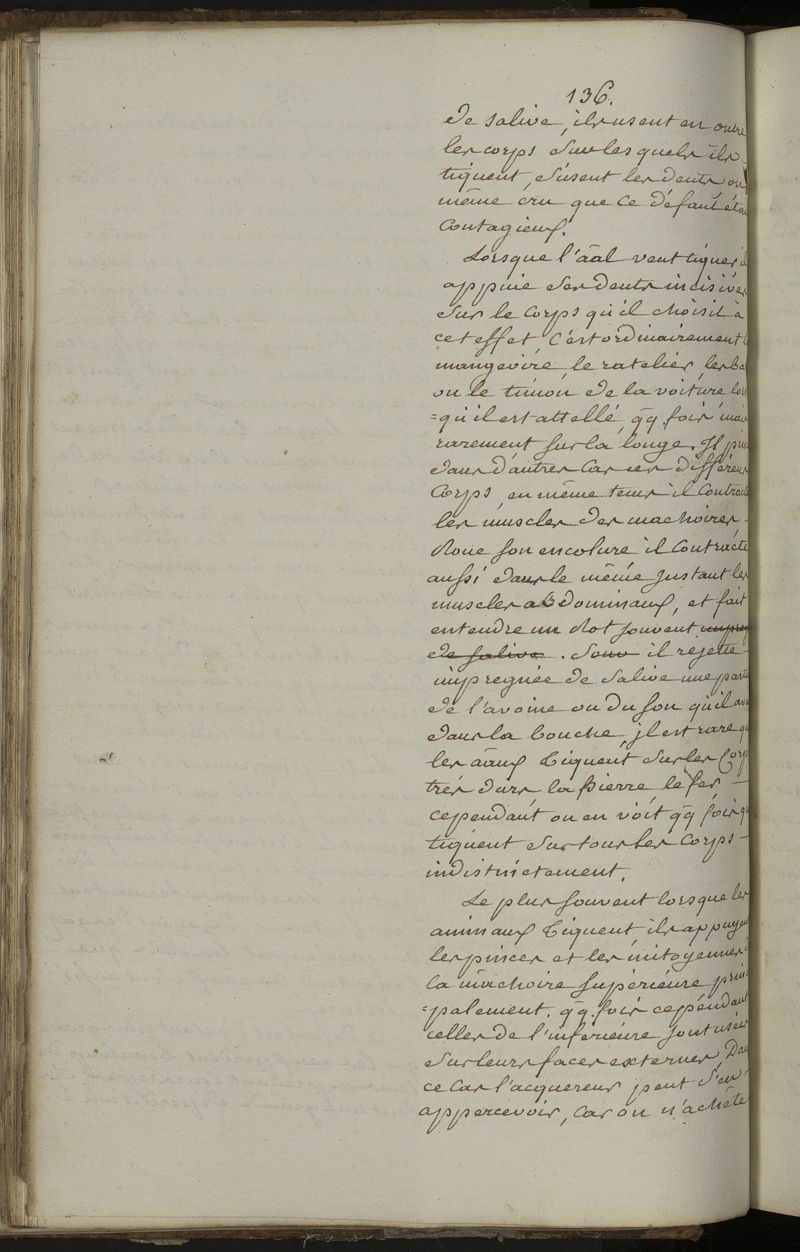 136.
de salive, ils usent en outre
les corps sur lesquels ils
tiquent, s'usent les dents on
même cru que ce défaut étai
contagieux.
Lorsque l'āal veut tiquer i
appuie ses dents incisives
sur le corps qu'il choisit à
cet effet, c'est ordinairement l
mangeoire, le ratelier, les ba
ou le timon de la voiture lors
=qu'il est attellé, qq. fois mais
rarement sur la longe. Il
dans d'autres cas ces différens
corps, en même tems il contracte
les muscles des machoires,
roue son encolure il contracte
aussi dans le même instant les
muscles abdominaux, et fait
entendre un rot souvent impreg
de salive. Sonv il rejette
impregnée de salive une partie
de l'avoine ou du son qu'il avi
dans la bouche, il est rare q
les āaux tiquent sur les corps
très durs la pierre, le fer,
cependant on en voit qq fois q
tiquent sur tous les corps
indistinctement.
Le plus souvent lorsque les
animaux tiquent ils appuyent
les pinces et les mitoyennes
la machoire supérieure prin
=palement. qq. fois cependant
celles de l'inférieure sont usées
sur leurs faces externes, Dan
ce cas l'acquereur peut s'en
appercevoir, car on n'achète